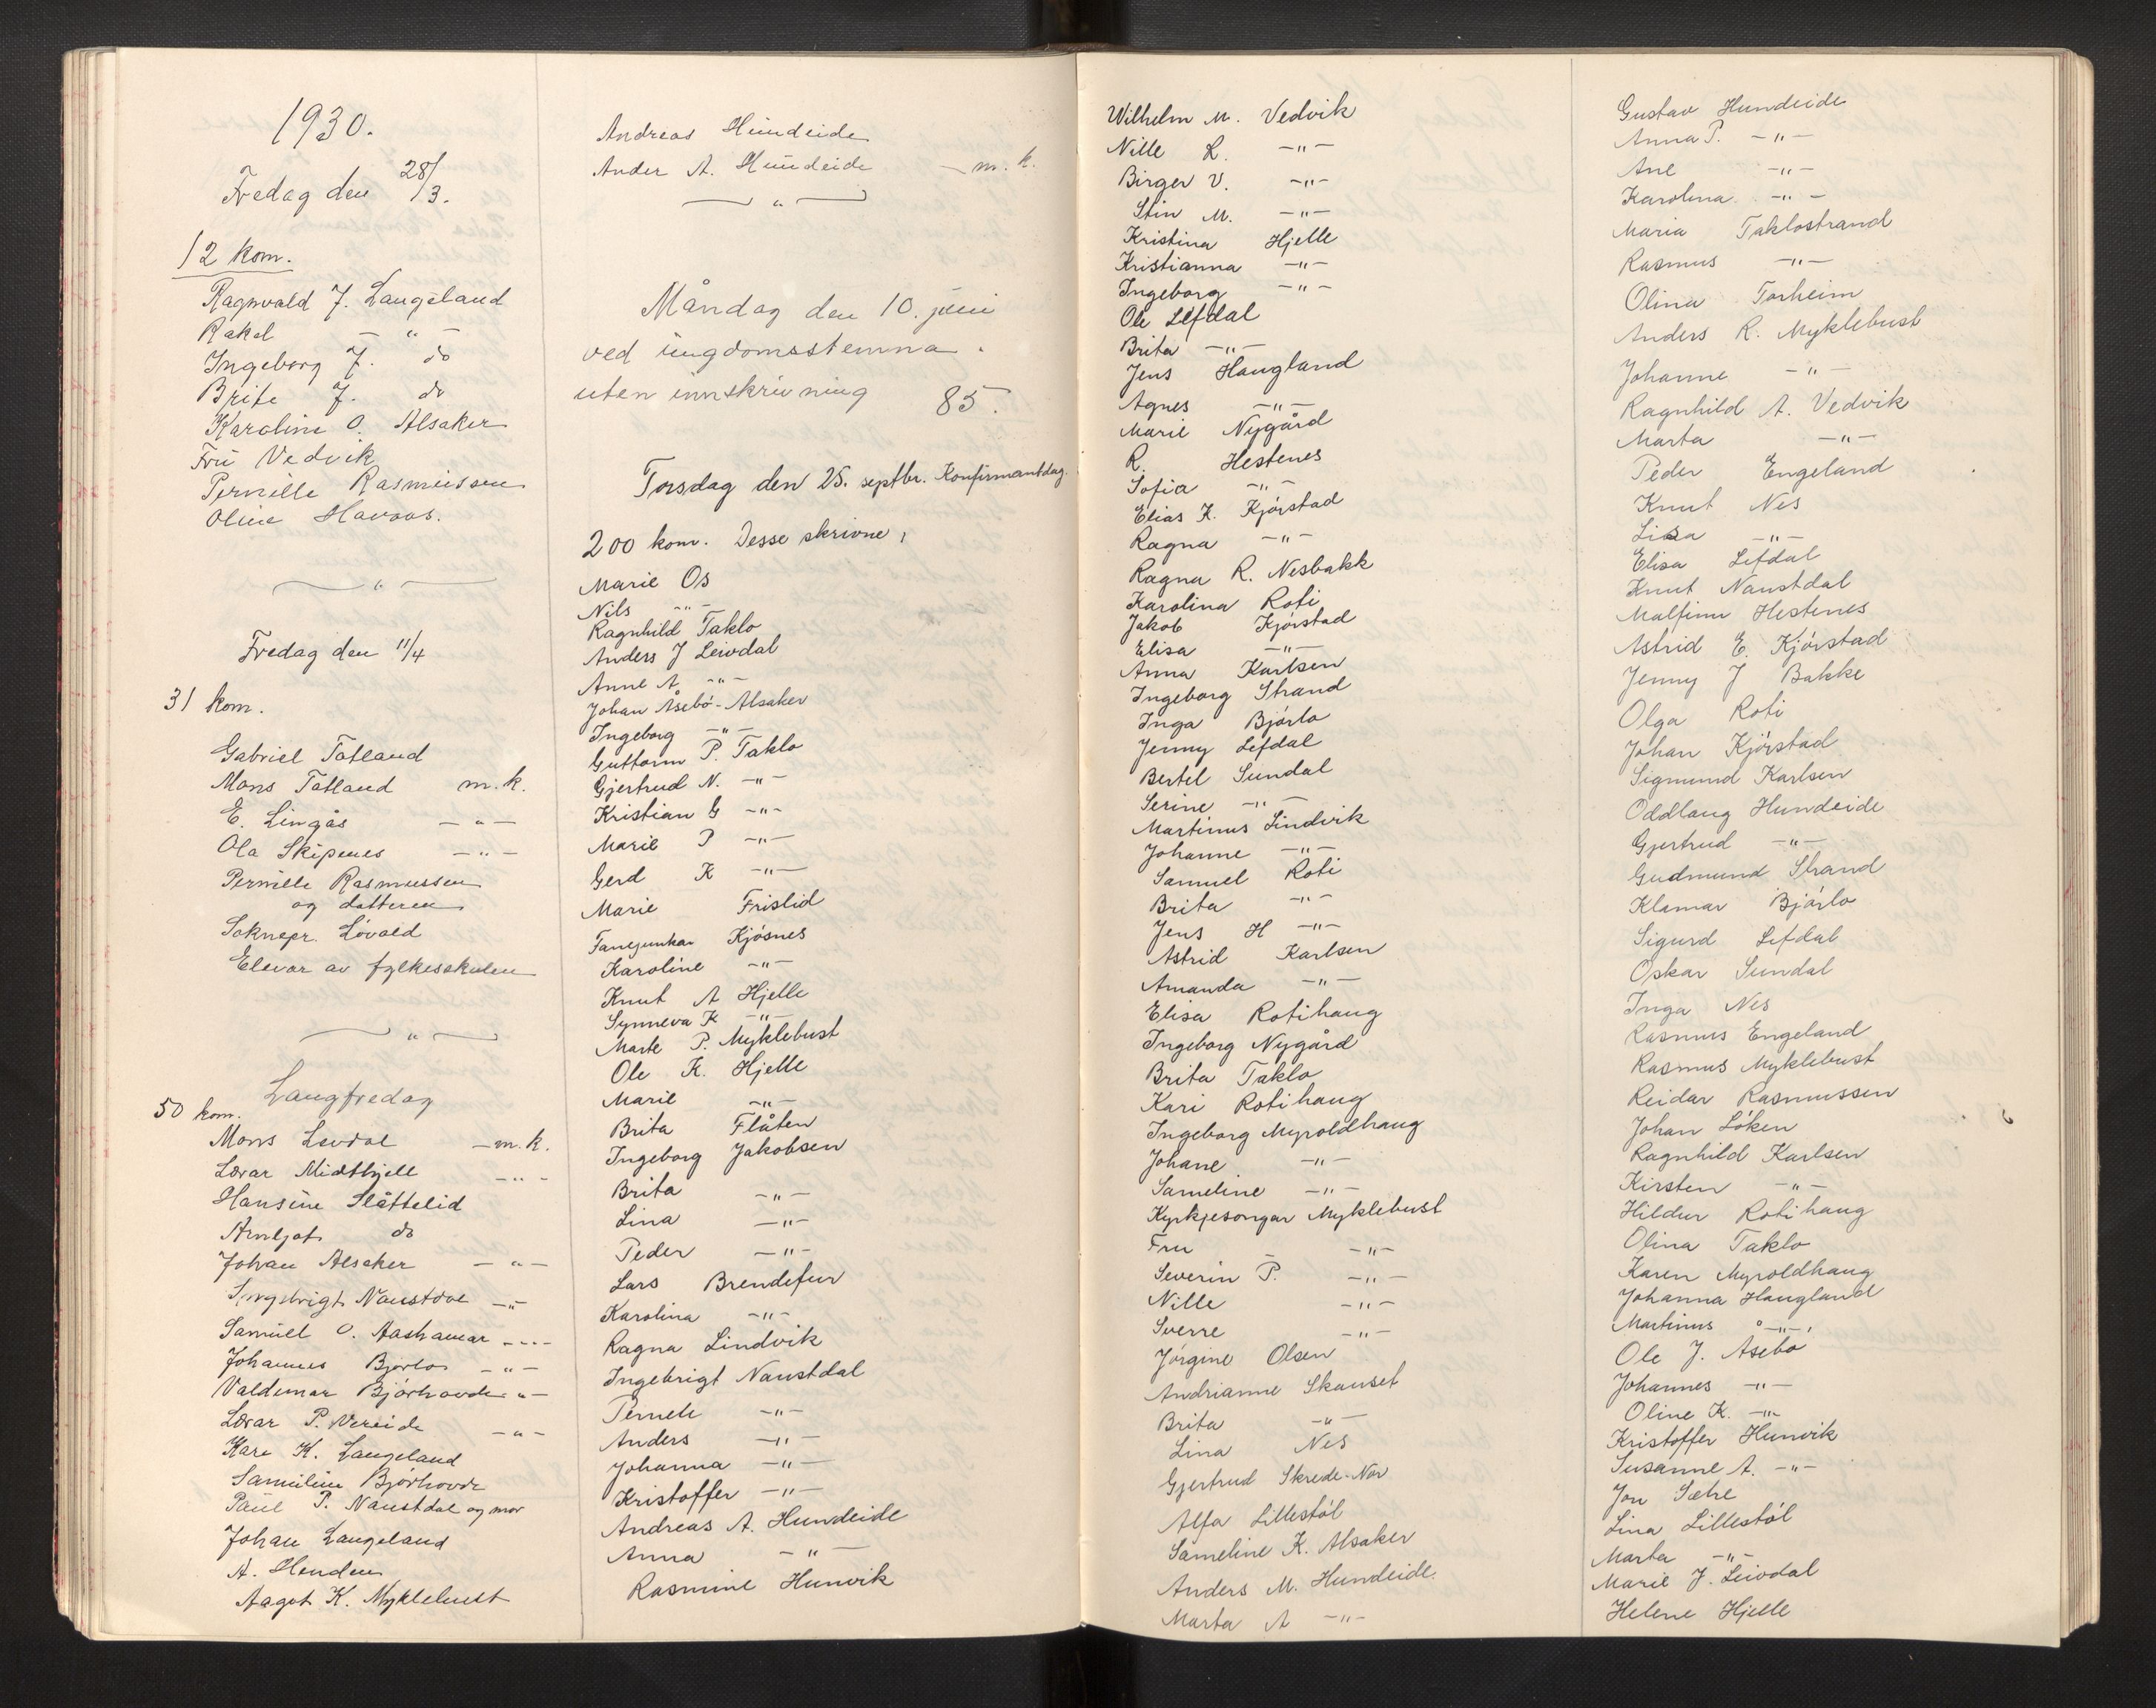 1930.
Fredag den 28/3.
12 kom.
Ragnvald J. Langeland
Rakel — " —
Ingeborg J. do
Brite J. do
Karoline O. Alsaker
Fru Vedvik
Pernille Rasmussen
Oline Havaas.
— " —
Fredag den 11/4
31 kom.
Gabriel Totland
Mons Totland m.k.
E. Lingås — " —
Ola Skipenes — " —
Pernille Rasmussen
og datteren
Soknepr. Løvold
Elevar av fylkesskulen
— " —
Langfredag
50 kom.
Mons Levdal — m.k.
Lærar Midthjell — " —
Hansine Slåttelid
Arnljot do
Johan Alsaker — " —
Ingebrigt Naustdal — " —
Samuel O. Aashamar — " —
Johannes Bjørlo — " —
Valdemar Bjørhovde — " —
Lærar P. Vereide — " —
Kare K. Langeland
Sameline Bjørhovde
Paul P. Naustdal og mor
Johan Langeland
A. Henden
Aagot K. Myklebust
Andreas Hundeide
Ander A. Hundeide — m.k.
— " —
Måndag den 10. juni
ved ungdomsstemna.
uten innskrivning 85.
Torsdag den 25. septbr. Konfirmantdag.
200 kom. Desse skrivne,
Marie Os
Nils — " —
Ragnhild Taklo
Anders J Leivdal
Anne A — " —
Johan Åsebø-Alsaker
Ingeborg — " —
Guttorm P. Taklo
Gjertrud N. — " —
Kristian G — " —
Marie P — " —
Gerd K — " —
Marie Frislid
Kjøsnes
Karoline — " —
Knut A Hjelle
Synneva K — " —
Marte P. Myklebust
Ole K. Hjelle
Marie — " —
Brita Flåten
Ingeborg Jakobsen
Brita — " —
Lina — " —
Peder — " —
Lars Brendefur
Karolina — " —
Ragna Lindvik
Ingebrigt Naustdal
Pernele — " —
Anders — " —
Johanna — " —
Kristoffer — " —
Andreas A. Hundeide
Anna — " —
Rasmine Hunvik
Wilhelm M. Vedvik
Nille L. — " —
Birger V. — " —
Stin M. — " —
Kristina Hjelle
Kristianna — " —
Ingeborg — " —
Ole Lefdal
Brita — " —
Jens Haugland
Agnes — " —
Marie Nygård
R. Hestenes
Sofia — " —
Elias K. Kjørstad
Ragna — " —
Ragna R. Nesbakk
Karolina Roti
Jakob Kjørstad
Elisa — " —
Anna Karlsen
Ingeborg Strand
Inga Bjørlo
Jenny Lefdal
Bertel Sundal
Serine — " —
Martinus Lindvik
Johanne — " —
Samuel Roti
Brita — " —
Jens H — " —
Astrid Karlsen
Amanda — " —
Elisa Rotihaug
Ingeborg Nygård
Brita Taklo
Kari Rotihaug
Ingeborg Myroldhaug
Johane — " —
Sameline — " —
Kyrkjesongar Myklebust
Fru — " —
Severin P. — " —
Nille — " —
Sverre — " —
Jørgine Olsen
Andrianne Skauset
Brita — " —
Lina Nes
Gjertrud Skrede-Nor
Alfa Lillestøl
Sameline K. Alsaker
Anders M. Hundeide.
Marta A — " —
Gustav Hundeide
Anna P. — " —
Ane — " —
Karolina — " —
Maria Taklostrand
Rasmus — " —
Olina Torheim
Anders R. Myklebust
Johanne — " —
Ragnhild A. Vedvik
Marta — " —
Peder Engeland
Knut Nes
Lisa — " —
Elisa Lefdal
Knut Naustdal
Malfinn Hestenes
Astrid E. Kjørstad
Jenny J Bakke
Olga Roti
Johan Kjørstad
Sigmund Karlsen
Oddlaug Hundeide
Gjertrud — " —
Gudmund Strand
Klamar Bjørlo
Sigurd Lefdal
Oskar Sundal
Inga Nes
Rasmus Engeland
Rasmus Myklebust
Reidar Rasmussen
Johan Løken
Ragnhild Karlsen
Kirsten — " —
Hildur Rotihaug
Olina Taklo
Karen Myroldhaug
Johanna Haugland
Martinus — " —
Ole J. Åsebø
Johannes — " —
Oline K. — " —
Kristoffer Hunvik
Susanne A. — " —
Jon Sætre
Lina Lillestøl
Marta — " —
Marie J. Leivdal
Helene Hjelle